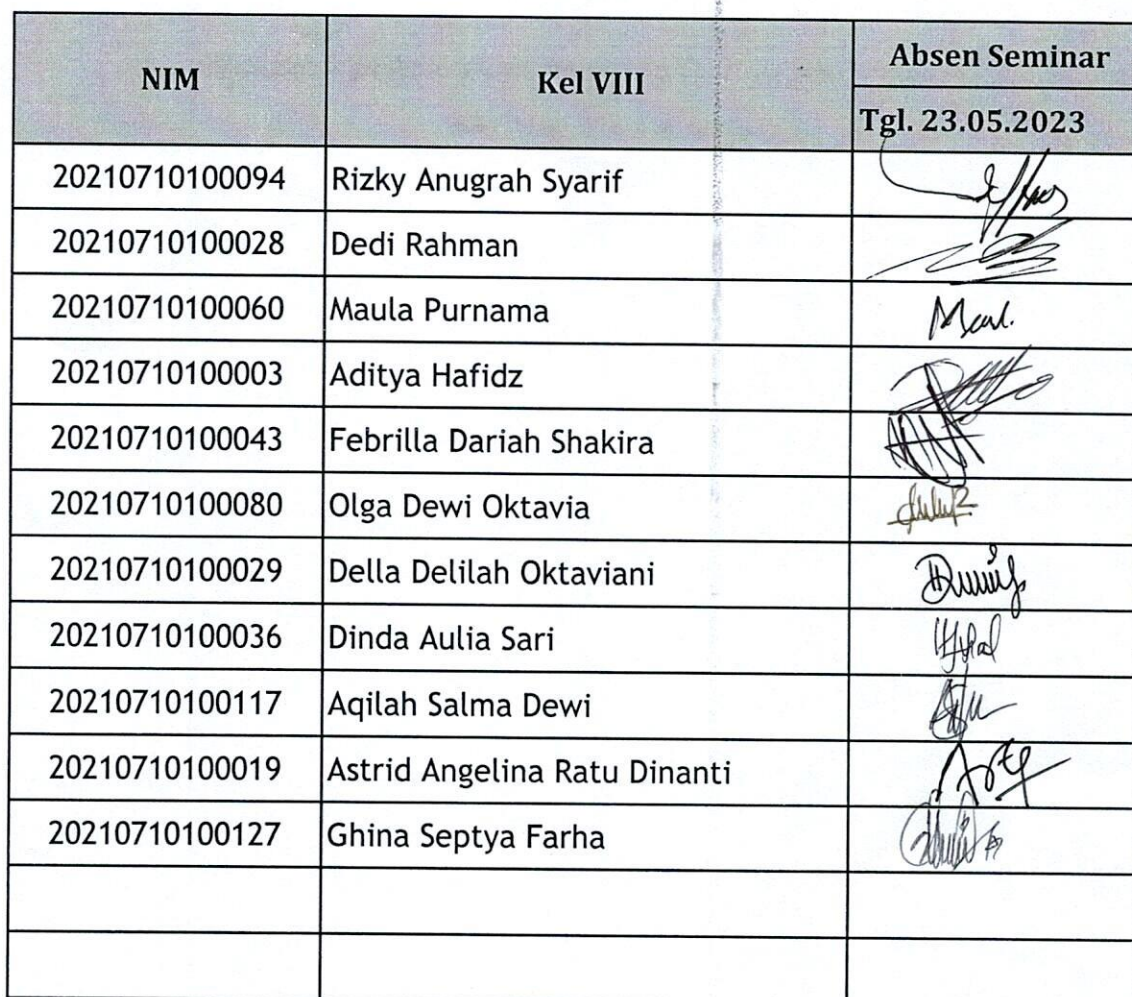 NIM Kel VIII Absen Seminar
Tgl. 23.05.2023
20210710100094 Rizky Anugrah Syarif
20210710100028 Dedi Rahman
20210710100060 Maula Purnama
20210710100003 Aditya Hafidz
20210710100043 Febrilla Dariah Shakira
20210710100080 Olga Dewi Oktavia
20210710100029 Della Delilah Oktaviani
20210710100036 Dinda Aulia Sari
20210710100117 Aqilah Salma Dewi
20210710100019 Astrid Angelina Ratu Dinanti
20210710100127 Ghina Septya Farha